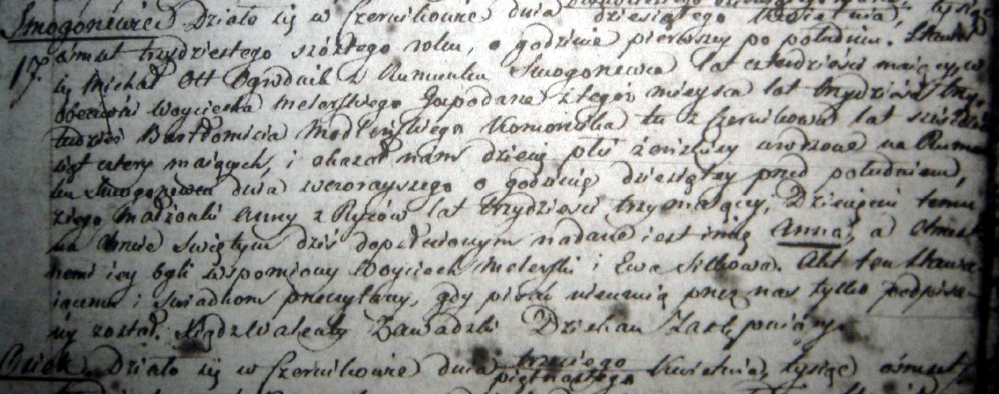 Smogoniewiec Działo się w Czernikowie dnia dziesiątego Kwietnia, tysiąc
17. ośmset trzydziestego szóstego roku, o godzinie pierwszy po południu. Stawił
się Michał Ott Ogrodnik z Rumunku Smogoniewca lat czterdzieści maiący, w
obecności Woyciecha Melerskiego Gospodarza z tegoż mieysca lat trzydzieści trzy
tudzież Bartłomieia Modleńskiego Komornika tu z Czernikowa lat
cztery maiących, i okazał nam dziecię płci żeńskiey urodzone na Rumun
ku Smogoniewcu dnia wczorayszego o godzinie dziesiątey przed południem,
z iego małżonki Anny z lat trzydzieści trzy maiącey, Dziecięciu temu
na Chrzcie świętym dziś dopełnionym nadane iest imię Anna, a Chrzest
nemi iey byli wspomiony Woyciech Melerski i Ewa. Akt ten stawa
iącemu i świadkom przeczytany, gdy pisać nieumią przez nas tylko podpisa
ny został. Xiądz Walenty Zawadzki Dziekan Zastępuiący
Działo się w Czernikowie dnia trzeciego Kwietnia, tysiąc ośmset
piętnastego